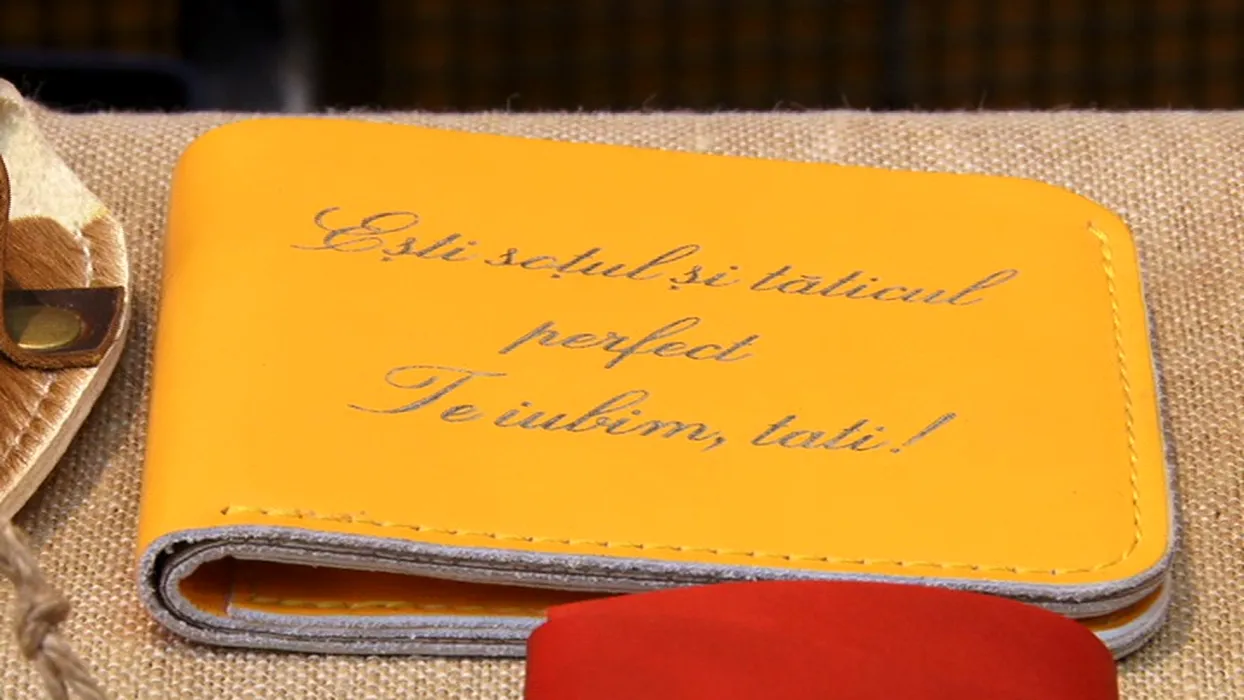 Ești soțul și tăticul
perfect
Te iubim, tati!